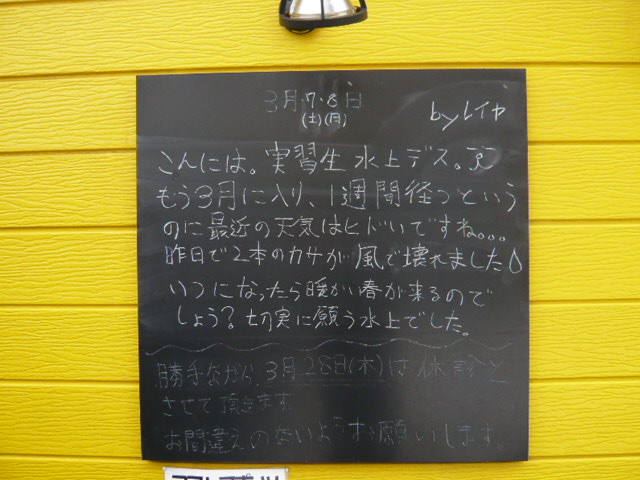 3月7・8日
(土)(月)
byレイヤ
こんには。実習生 水上デス。
もう3月に入り、1週間径つという
のに最近の天気はヒドいですね。。。
昨日で2本のカサが風で壊れました
いつになったら暖かい春が来るので
しょう?切実に願う水上でした。
勝手ながら、3月28日(木)は休診と
させて頂きます
お間違えのないようお願いします。